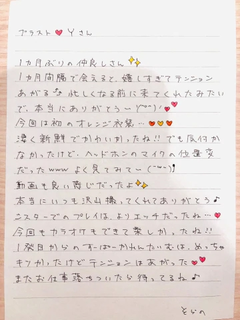 ラスト❤Yさん
1カ月ぶりの仲良しさん✨
1カ月間隔で会えると、嬉しすぎてテンション
あがる 忙しくなる前に来てくれたみたい
で、本当にありがとう〜
今回は和のオレンジ衣装…
凄く新鮮でかわいかったね!! でも気付か
なかったけど、ヘッドホンのマイクの位置変
だったwww よく見てみて〜
動画も良い感じだったよ✨
本当にいつも沢山撮ってくれてありがとう♪
ニスターでのプレイは、よりエッチだったね…❤
今回もカラオケもできて楽しかったね!!
1発目からのすーぱーかれんたいむは、めっちゃ
キツかったけどテンションはあがった❤
またお仕事落ちついたら待ってるね♪